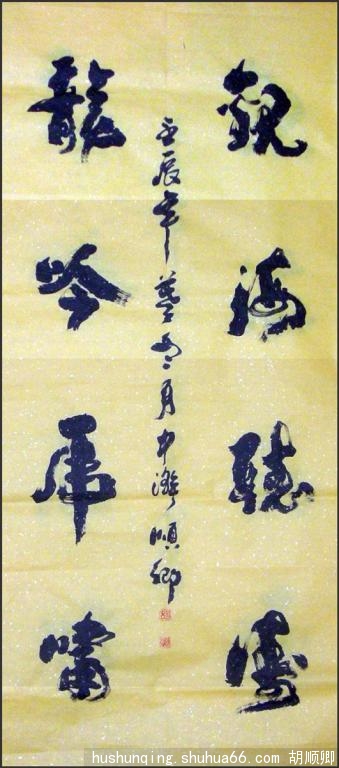 觀海聽濤
壬辰年月中澣順卿
龍吟虎嘯
hushunqing.shuhua66.com 胡顺卿